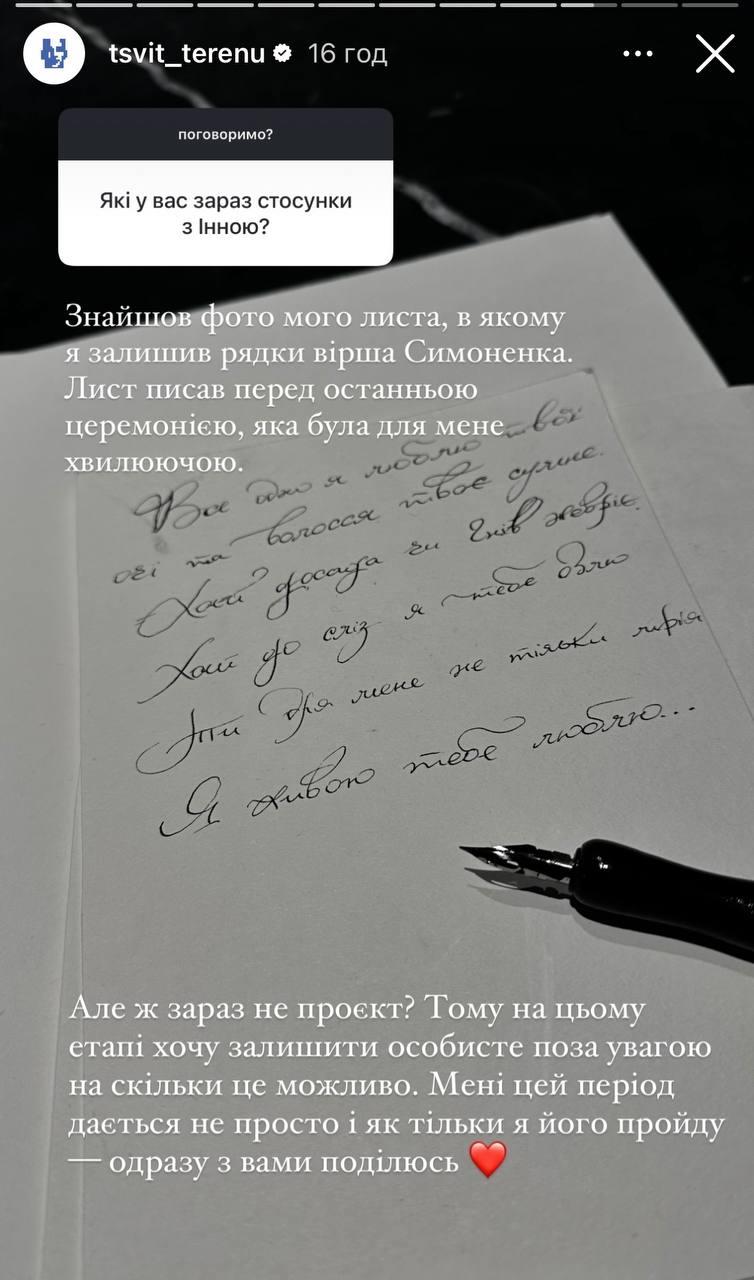 tsvit_terenu 16 год
поговоримо?
Які у вас зараз стосунки
з Інною?
Знайшов фото мого листа, в якому
я залишив рядки вірша Симоненка.
Лист писав перед останньою
церемонією, яка була для мене
хвилюючою.
Все одно я люблю твої
очі та волосся твоє сумне.
Хай досада чи гнів жевріє,
Хай до сліз я тебе озлю
Ти для мене не тільки мрія
Я живою тебе люблю...
Але ж зараз не проєкт? Тому на цьому
етапі хочу залишити особисте поза увагою
на скільки це можливо. Мені цей період
дається не просто і як тільки я його пройду
— одразу з вами поділюсь ❤️